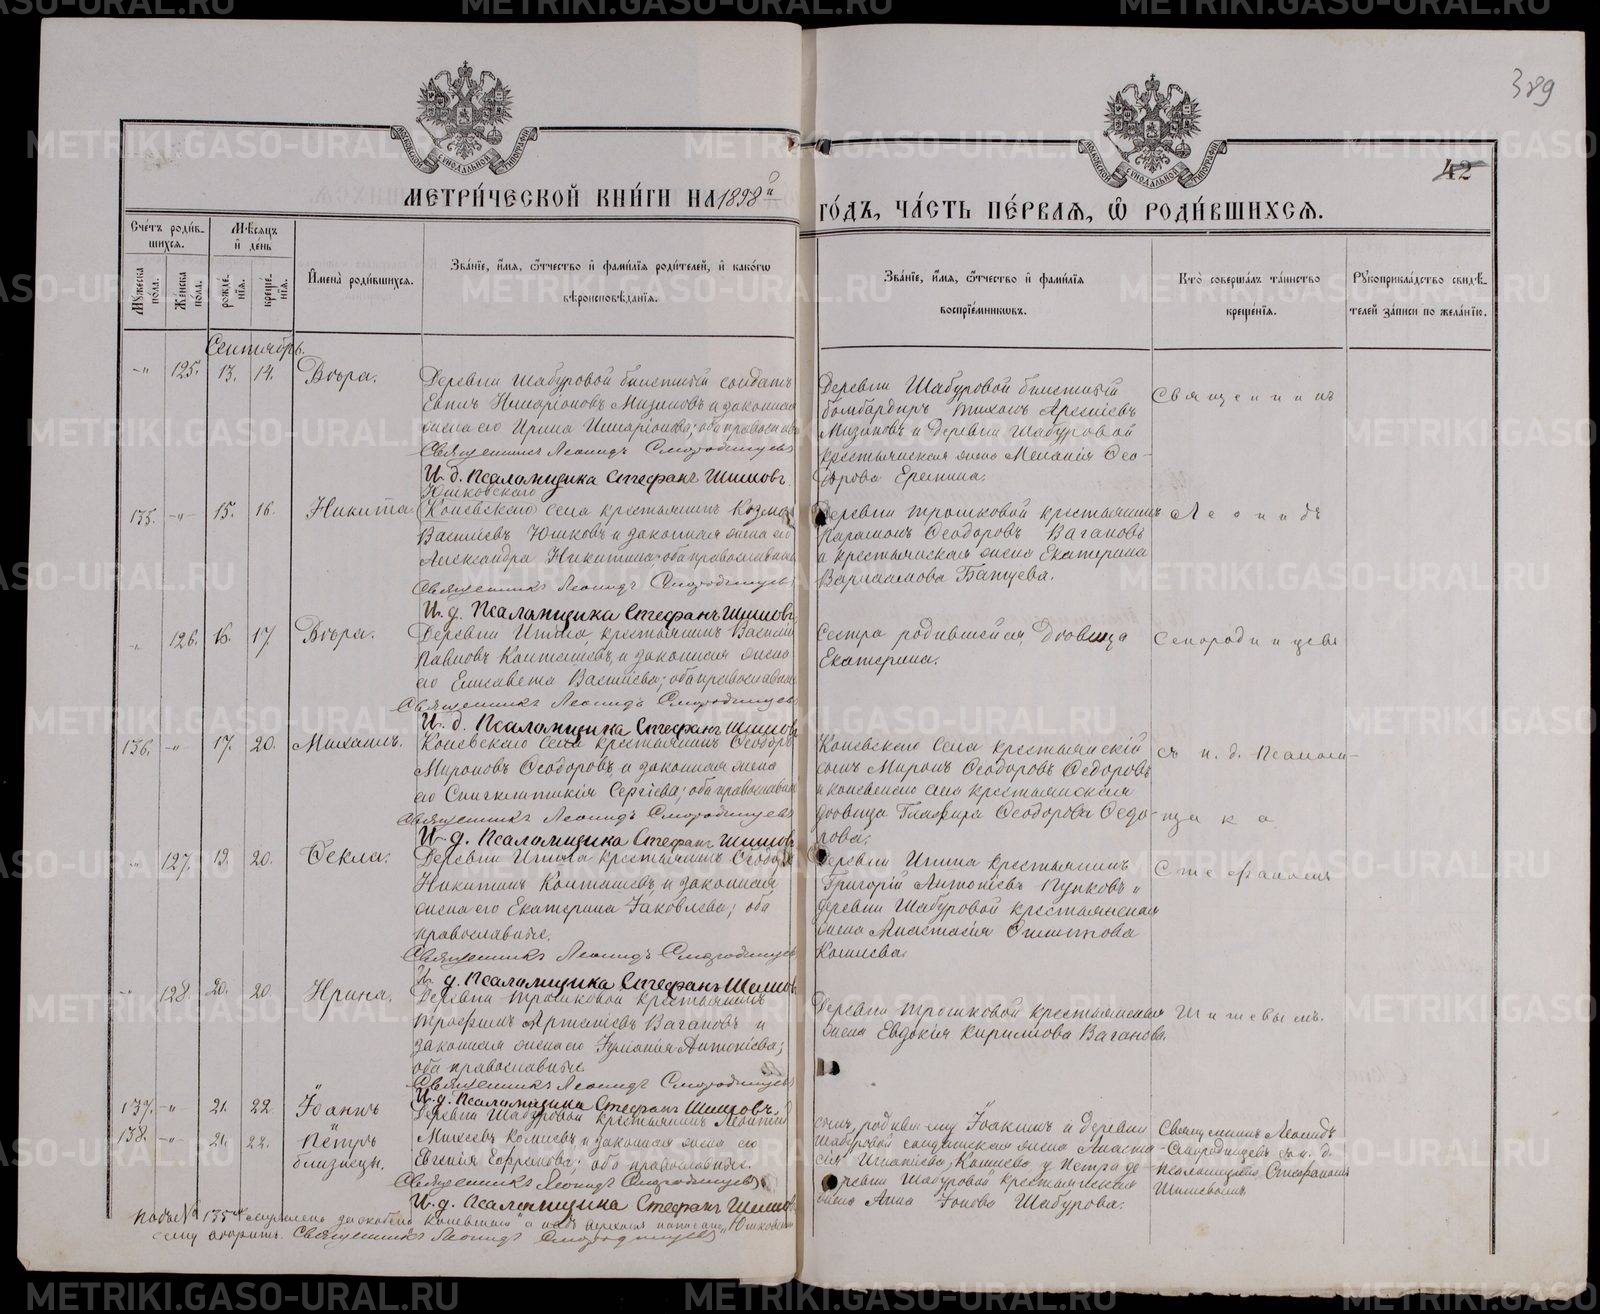 389
42
МЕТРИ́ЧЕСКОЙ КНИ́ГИ НА 1898й
ГО́ДЪ, ЧА́СТЬ ПЕ́РВАЯ, Ѡ РОДИ́ВШИХСЯ.
Сче́тъ роди́в-
шихся.
Мꙋ́жеска по́ла.
Же́нска по́ла.
Мѣ́сяцъ и҆ де́нь
рожде́-нїя.
креще́-нїя.
И҆мена̀ роди́вшихся.
Зва́нїе, и҆́мя, ѻ҆́тчество и҆ фами́лїя роди́телей, и҆ како́гѡ
вѣроисповѣ́данїя.
Зва́нїе, и҆́мя, ѻ҆́тчество и҆ фами́лїя
воспрїе́мникѡвъ.
Кто̀ соверша́лъ та́инство
креще́нїя.
Рꙋкоприкла́дство свидѣ́-
телей за́писи по жела́нїю.
Сентябрь.
-"- 125. 13. 14. Вѣра.
Деревни Шабуровой билетный солдатъ
Мизиновъ и законная
жена его Ирина Иларіонова; оба православ
Священникъ Леонидъ Смородинцевъ
И. д. Псаломщика Стефанъ Шишовъ
Деревни Шабуровой билетный
бомбардиръ Тихонъ Арсеніевъ
Мизиновъ и деревни Шабуровой
крестьянская жена Меланія Ѳео-
дорова Еремина.
Священникъ
135. -"- 15. 16. Никита
Юшковскаго
(Коневскаго) села крестьянинъ Козма
Василіевъ Юшковъ и законная жена его
Александра Никитина; оба православные
Священникъ Леонидъ Смородинцевъ
И. д. Псаломщика Стефанъ Шишовъ
Деревни Трошковой крестьянинъ
Парамонъ Ѳеодоровъ Вагановъ
и крестьянская жена Екатерина
Варлаамова
Леонидъ
" 126. 16. 17. Вѣра.
Деревни крестьянинъ Василій
Павловъ и законная жена
его Елисавета Василіева; оба православные
Священникъ Леонидъ Смородинцевъ
И. д. Псаломщика Стефанъ Шишовъ
Сестра родившейся, дѣвица
Екатерина.
Смородинцевъ
136. -"- 17. 20. Михаилъ.
Коневскаго села крестьянинъ Ѳеодоръ
Мироновъ Ѳеодоровъ, и законная жена
его Синклитикія Сергіева; оба православные
Священникъ Леонидъ Смородинцевъ
И. д. Псаломщика Стефанъ Шишовъ
Коневскаго села крестьянскій
сынъ Миронъ Ѳеодоровъ Ѳедоровъ
и коневскаго села крестьянская
дѣвица Глафира Ѳеодорова Ѳедо-
рова.
съ и. д. псалом-
щика
" 127. 19. 20. Ѳекла.
Деревни крестьянинъ Ѳеодоръ
Никитинъ и законная
жена его Екатерина Іаковлева; оба
православные.
Священникъ Леонидъ Смородинцевъ
И. д. Псаломщика Стефанъ Шишовъ
Деревни крестьянинъ
Григорій Антоніевъ Пупковъ и
деревни Шабуровой крестьянская
жена Анастасія
Стефаномъ
" 128. 20. 20. Ирина.
Деревни Трошковой крестьянинъ
Трофимъ Вагановъ и
законная жена его Іуліанія Антоніева;
оба православные
Священникъ Леонидъ Смородинцевъ
И. д. Псаломщика Стефанъ Шишовъ.
Деревни Трошковой крестьянская
жена Евдокія Кирилова Ваганова.
Шишевымъ.
137. -"- 21. 22. Іоаннъ
138. -"- 21. 22. Петръ
близнецы.
Деревни Шабуровой крестьянинъ Леонтій
Михеевъ и законная жена его
Евгенія оба православные.
Священникъ Леонидъ Смородинцевъ
И. д. Псаломщика Стефанъ Шишовъ
Іоакимъ и деревни
Шабуровой солдатская жена
деревни Шабуровой крестьянская
жена Анна Іонова Шабурова.
Священникъ Леонидъ
Смородинцевъ съ и. д.
псаломщика Стефаномъ
Шишевымъ
Подъ № 135 "Коневскаго" а надъ написано "Юшковскаго"
вѣрить. Священникъ Леонидъ Смородинцевъ
METRIKI.GASO-URAL.RU